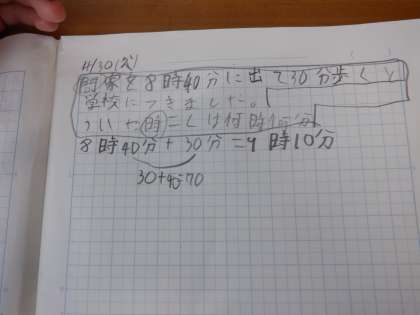 4/30(火)
問家を8時40分に出て30分歩くと
学校につきました。
ついた時こくは何時何分
8時40分+30分=9時10分
30+40=70